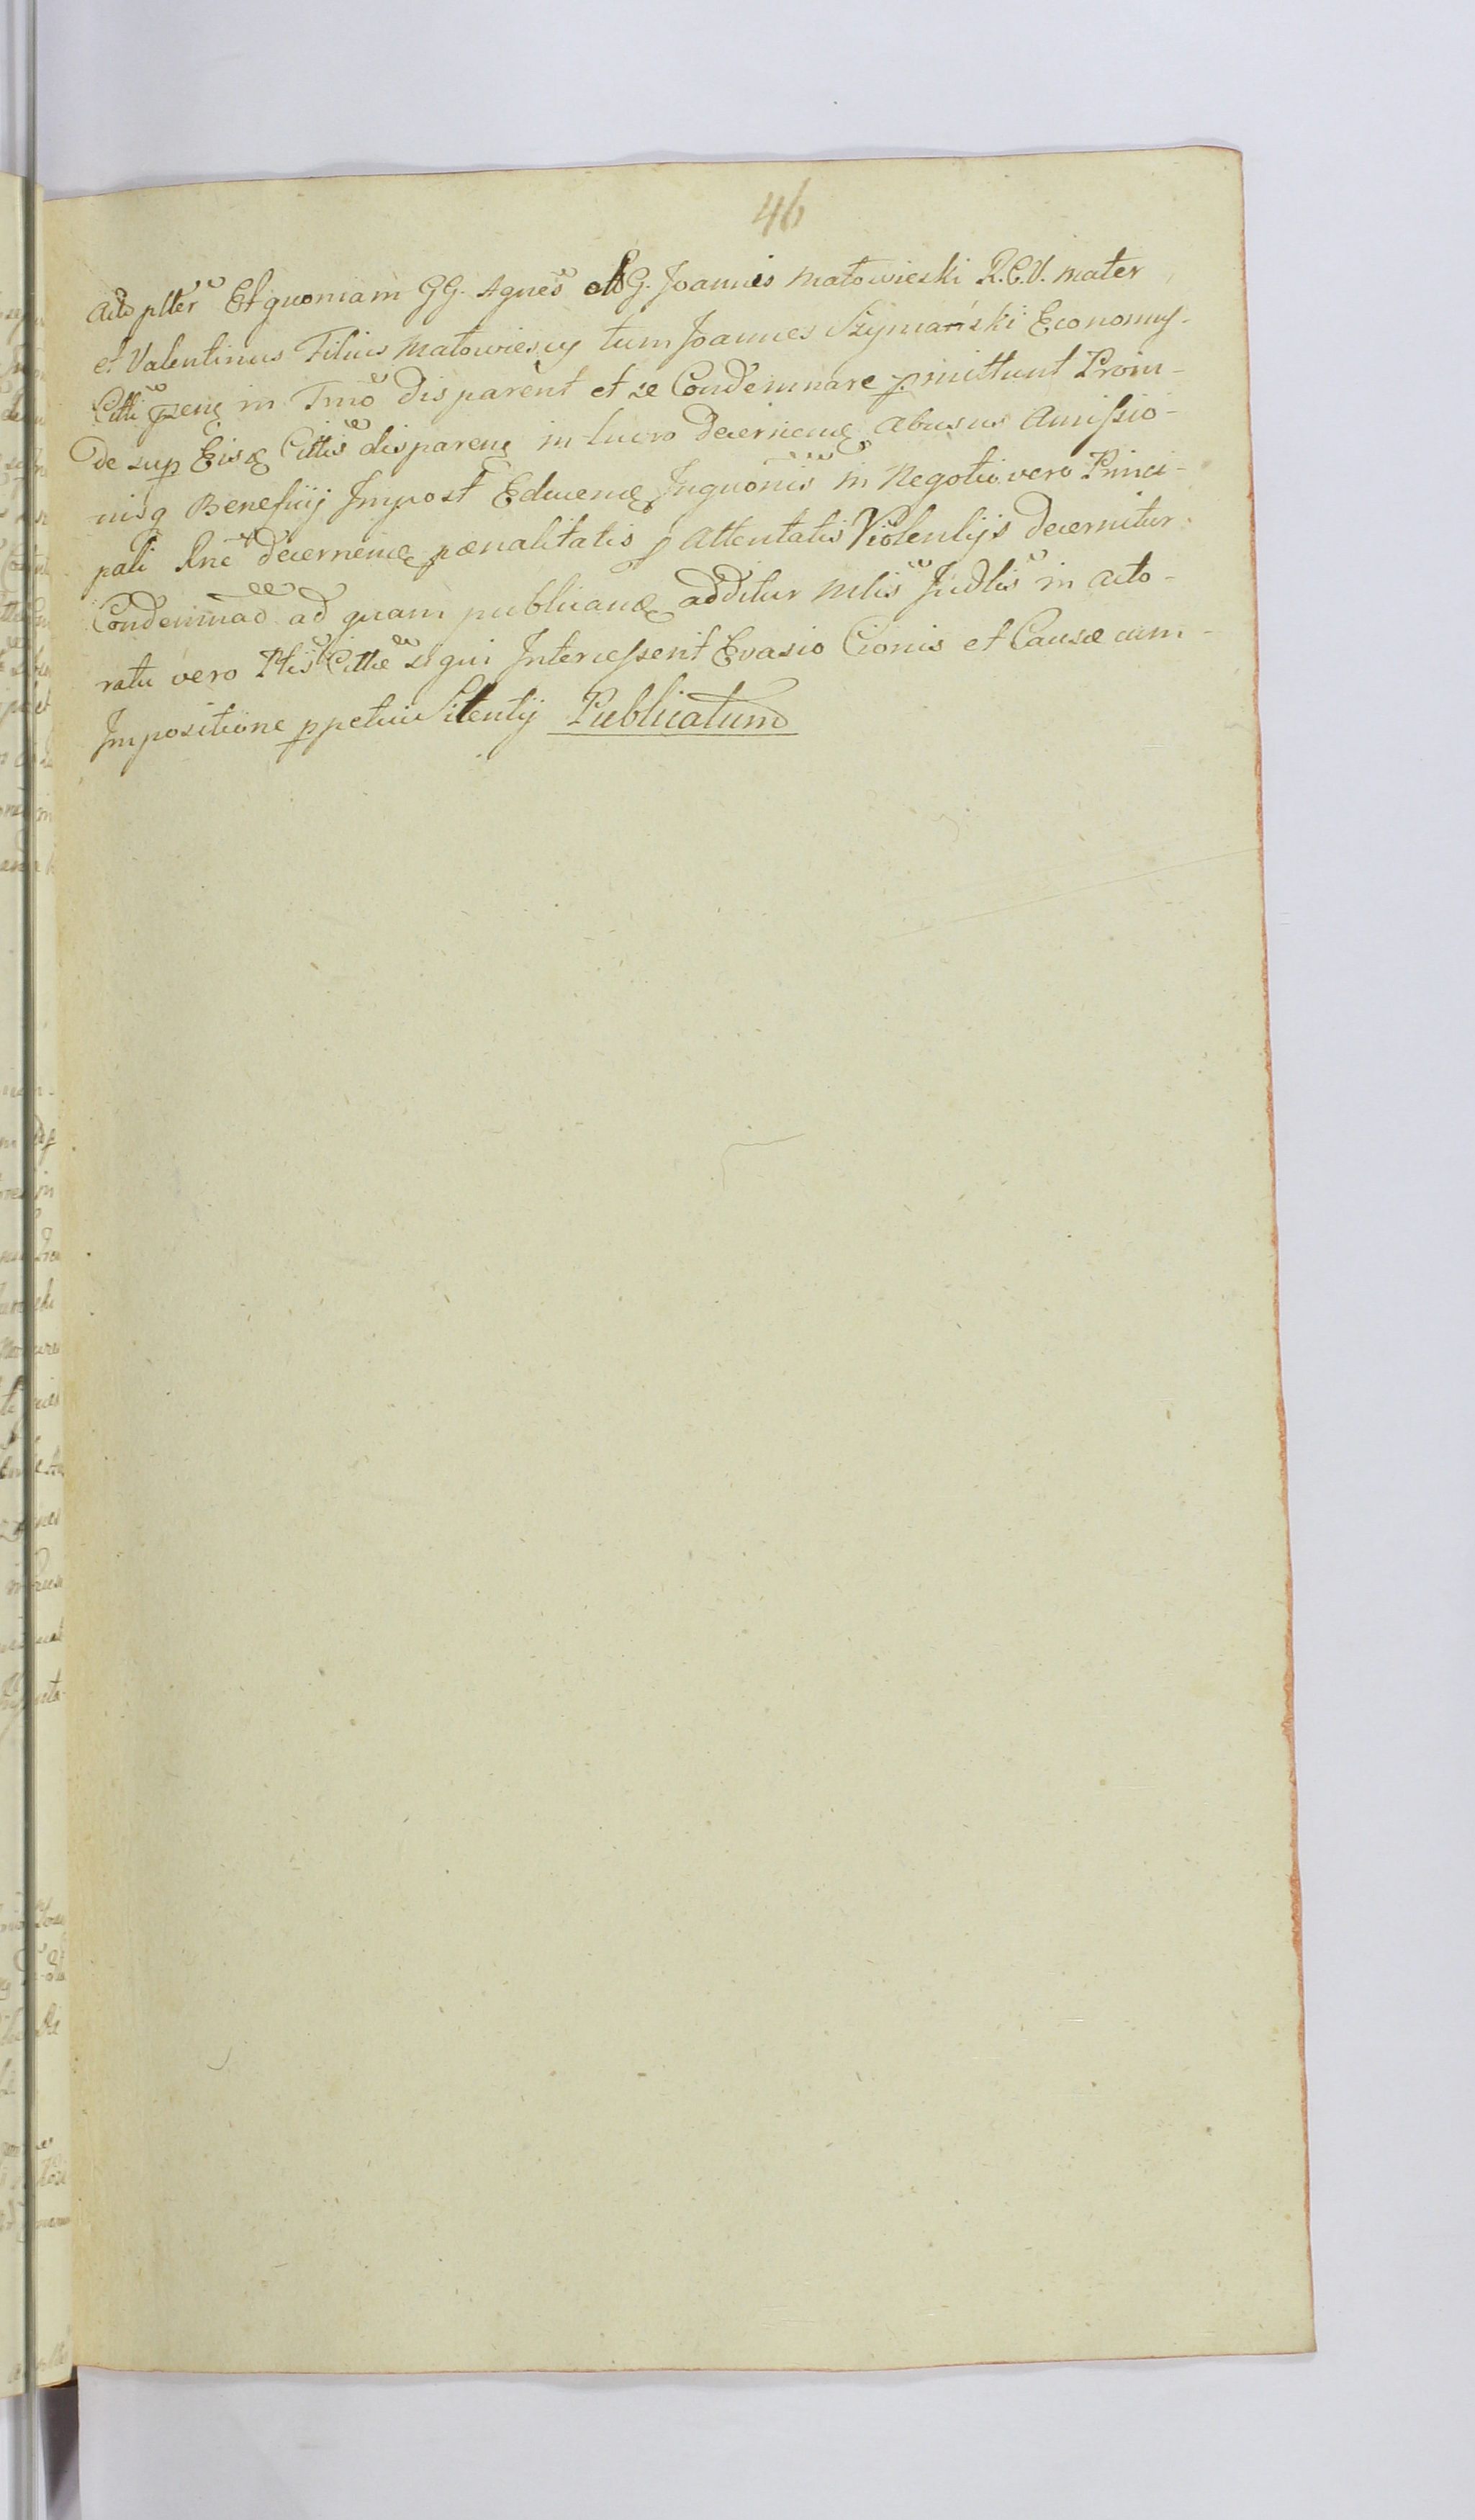 46
Acto plter Et quoniam GG. Agnes olo G. Joannis Małowieski R.C.V. Mater
et Valentinus Filius Małowiescy tum Joannes Szymański Economus
Citti in Tmo disparent et se Condemnare pmittunt Proin-
de sup Eisdę Cittis disparenę in lucro decernenę abusus Amissio-
nisq Beneficij Impost Educenę Inquonis in Negotio vero Princi-
pali Rne decernenę pœnalitatis p Attentatis Violentijs decernitur
Condemnao ad quam publicanę additur Mlis Judlis in acto-
ratu vero Ptis Cittæ sequi Intercesserit Evasio Cionis et Causæ cum
Impositione ppetui Silentij Publicatum